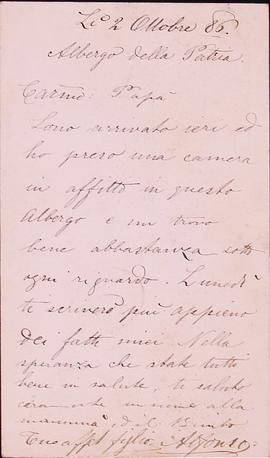 Li 2 Ottobre 86.
Albergo della Patria.
Carmo: Papà
Sono arrivato ieri ed
ho preso una camera
in affitto in questo
Albergo e mi trovo
bene abbastanza sotto
ogni riguardo. Lunedì
ti scriverò più appieno
dei fatti miei Nella
speranza che state tutti
bene in salute, ti saluto
insieme alla
mamma ed il
Tuo aff. figlio Alfonso